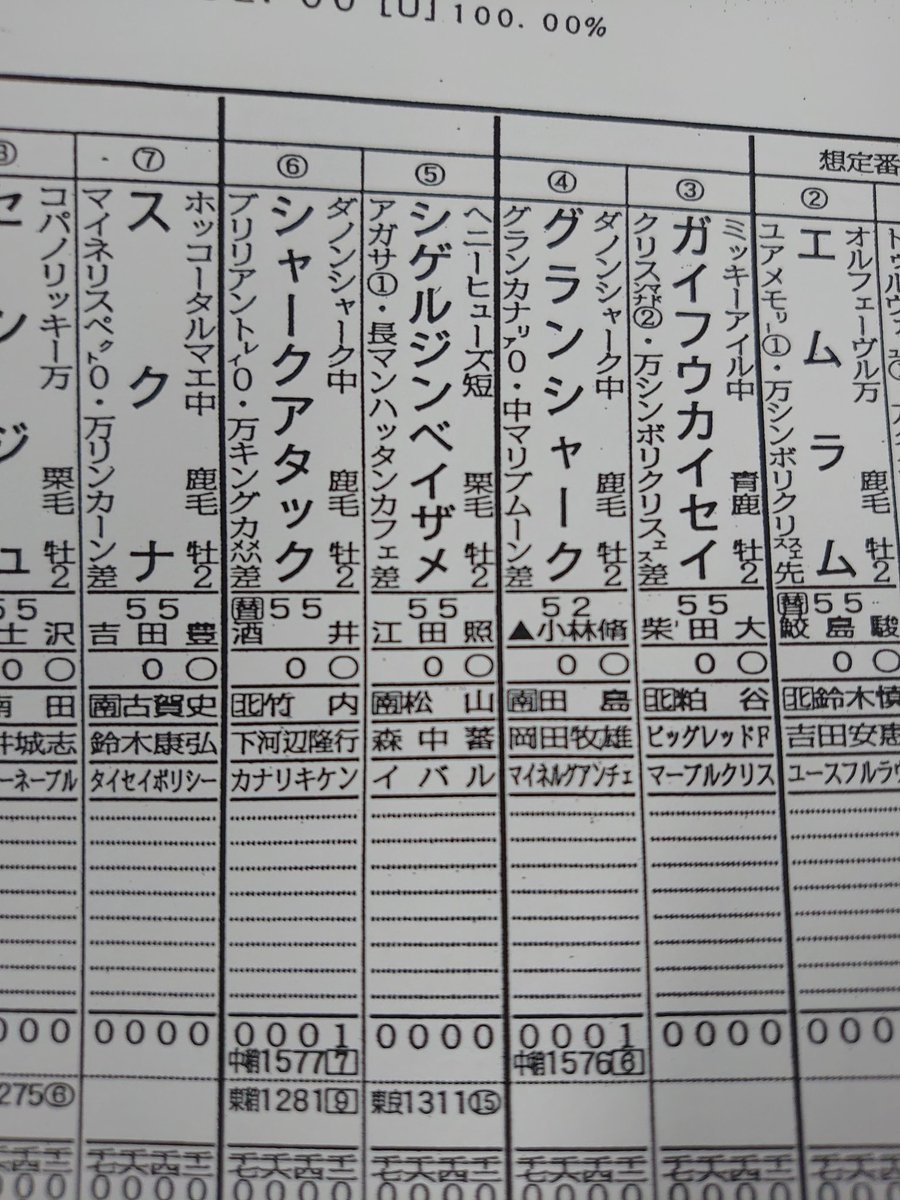 [U] 100.00%
想定番
②
オルフェーヴル万
エムラム
鹿毛 牡2
55
鮫島駿
0〇
吉田安恵
③
ミッキーアイル中
ガイフウカイセイ
青鹿 牡2
・万シンボリクリスエス差
55
柴田大
0〇
北粕谷
ビッグレッドF
マーブルクリス
0000
④
ダノンシャーク中
グランシャーク
鹿毛 牡2
グランカナリア0・中マリブムーン差
52
▲小林脩
0〇
南田島
岡田牧雄
マイネルグアンチェ
0001
中稍1576⑥
⑤
ヘニーヒューズ短
シゲルジンベイザメ
栗毛 牡2
アガサ①・長マンハッタンカフェ差
55
江田照
0〇
南松山
森中蕃
イバル
0000
東良1311⑮
⑥
ダノンシャーク中
シャークアタック
鹿毛 牡2
ブリリアントレイ0・万キングカメハメハ差
替55
酒井
0〇
北竹内
下河辺隆行
カナリキケン
0001
中稍1577⑦
東稍1281⑨
⑦
ホッコータルマエ中
スクナ
鹿毛 牡2
マイネリスペクト0・万リンカーン差
55
吉田豊
0〇
南古賀史
鈴木康弘
タイセイポリシー
0000
コパノリッキー万
栗毛
275⑥